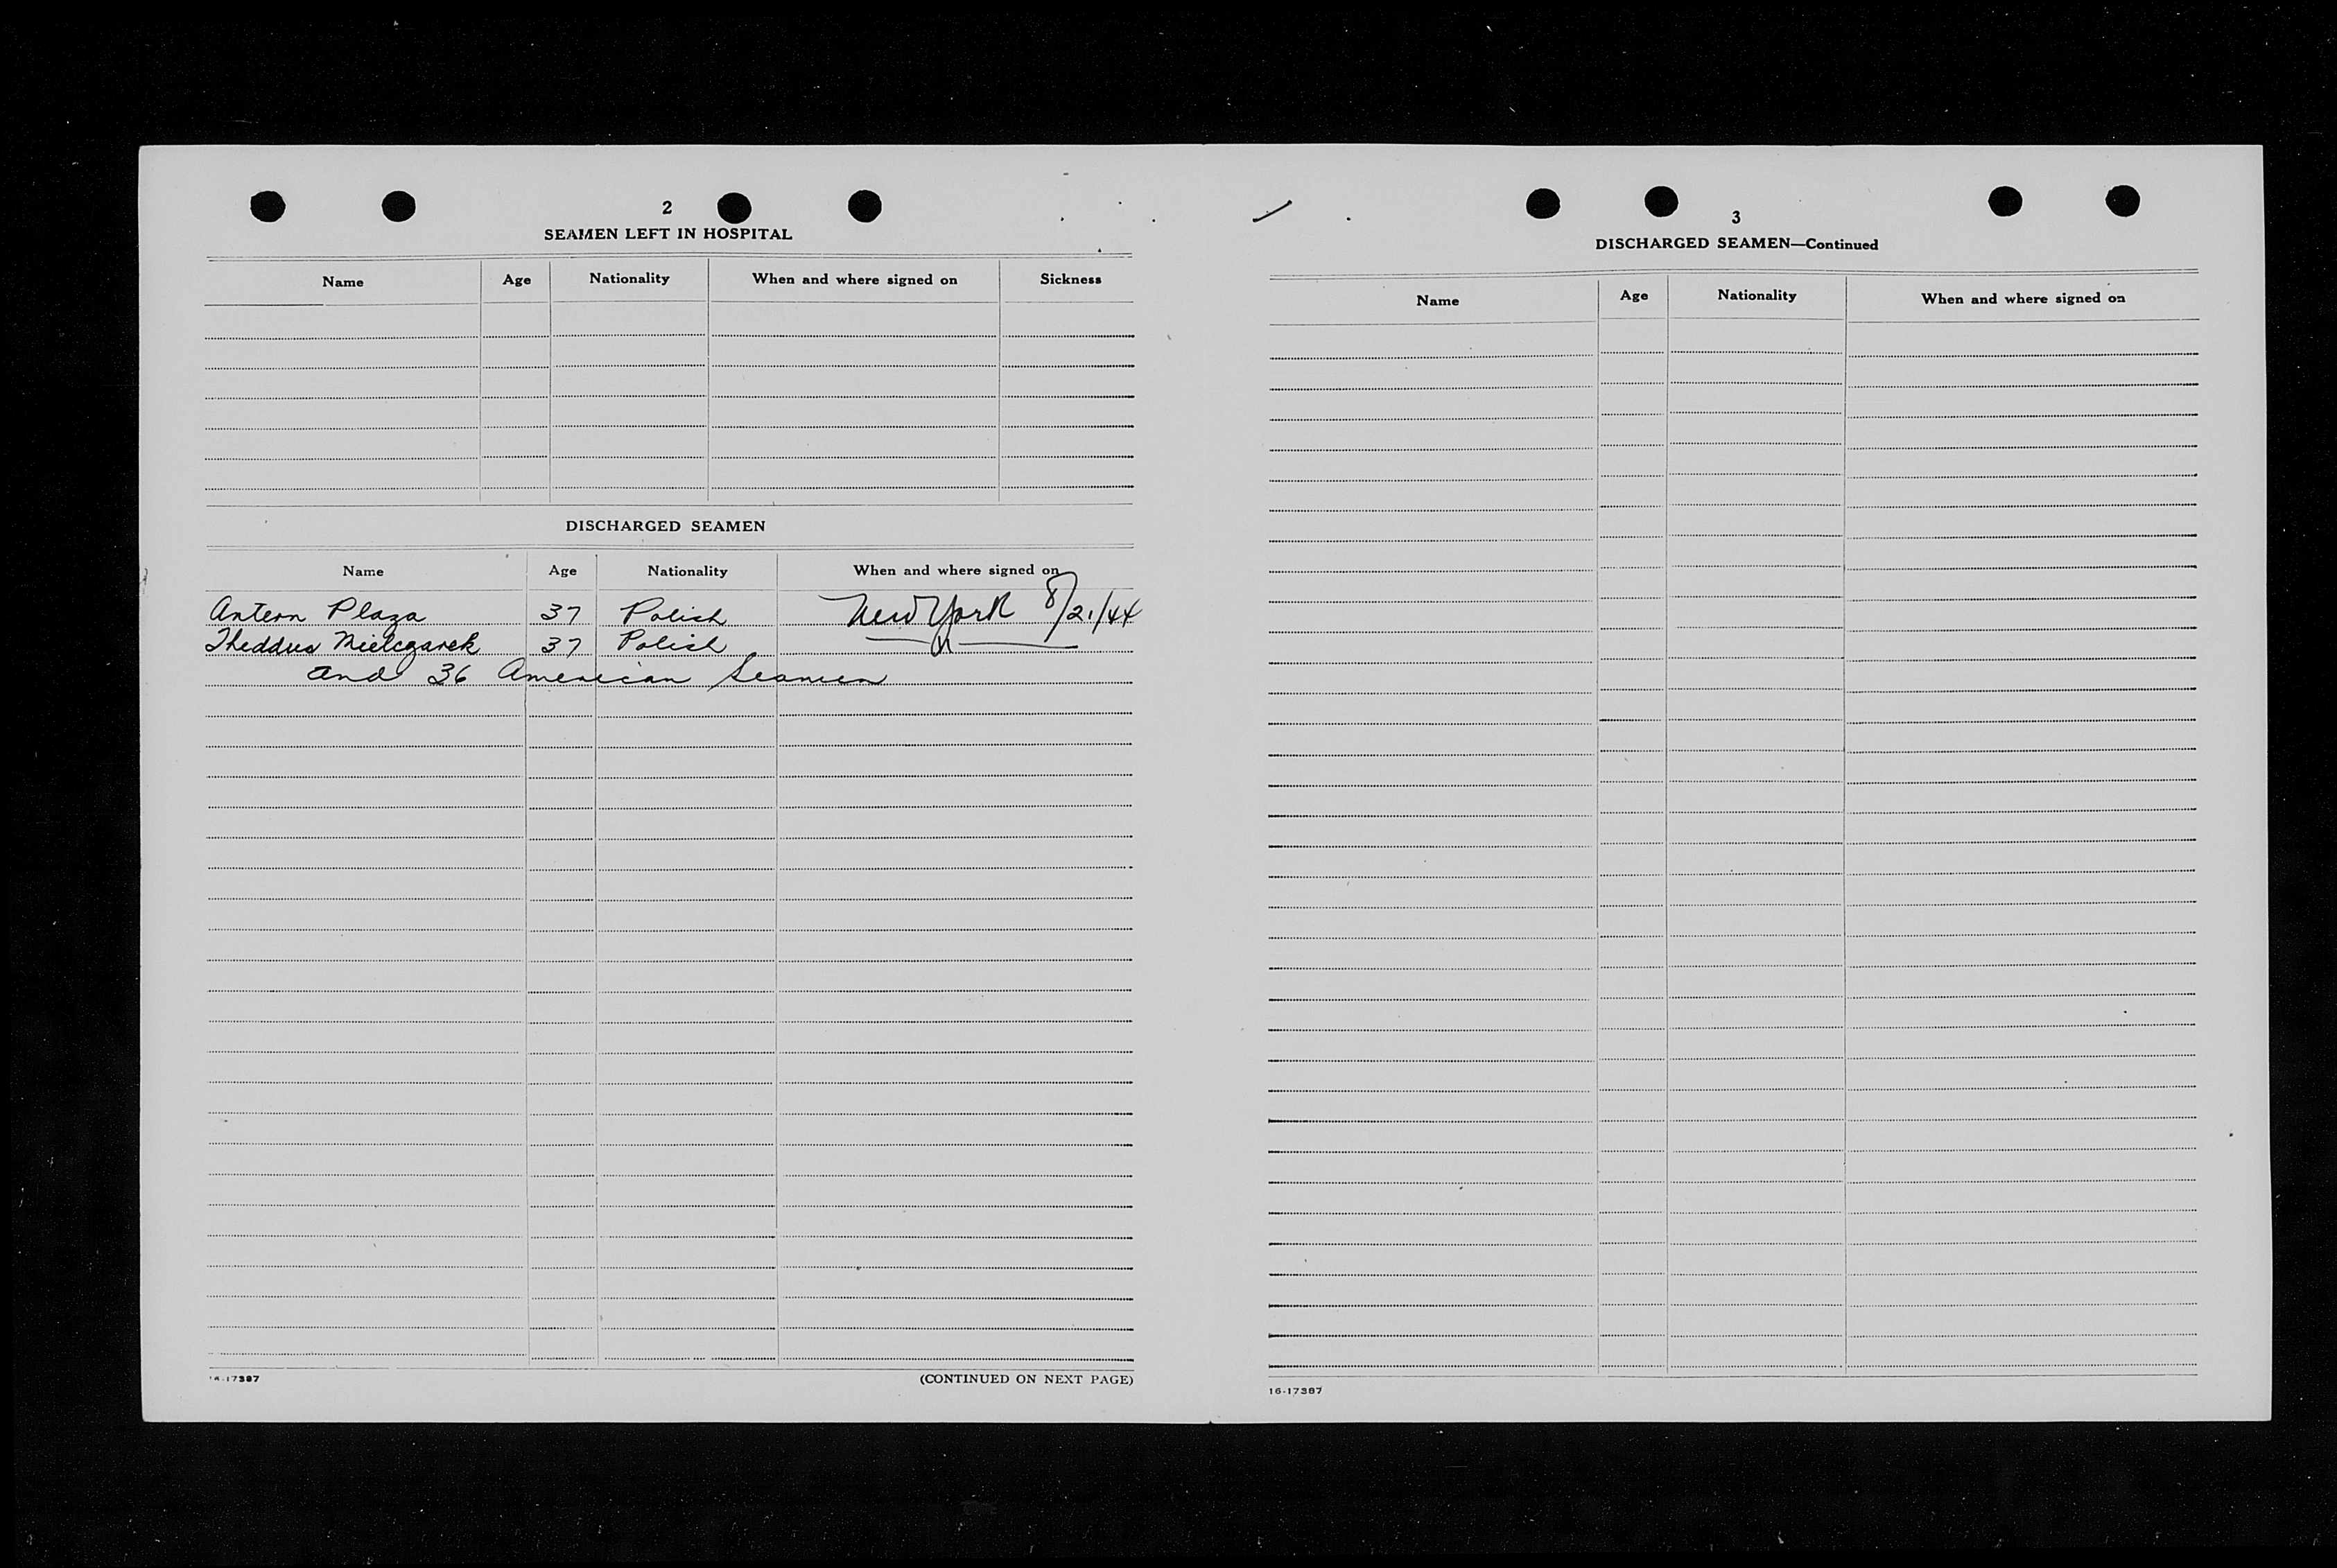 2
SEAMEN LEFT IN HOSPITAL
Name Age Nationality When and where signed on Sickness
DISCHARGED SEAMEN
Name Age Nationality When and where signed on
Antern Plaza 37 Polish New York 8/21/44
Theddus Mielczarek 37 Polish "
and 36 American Seamen
16-17397
(CONTINUED ON NEXT PAGE)
3
DISCHARGED SEAMEN—Continued
Name Age Nationality When and where signed on
16-17397